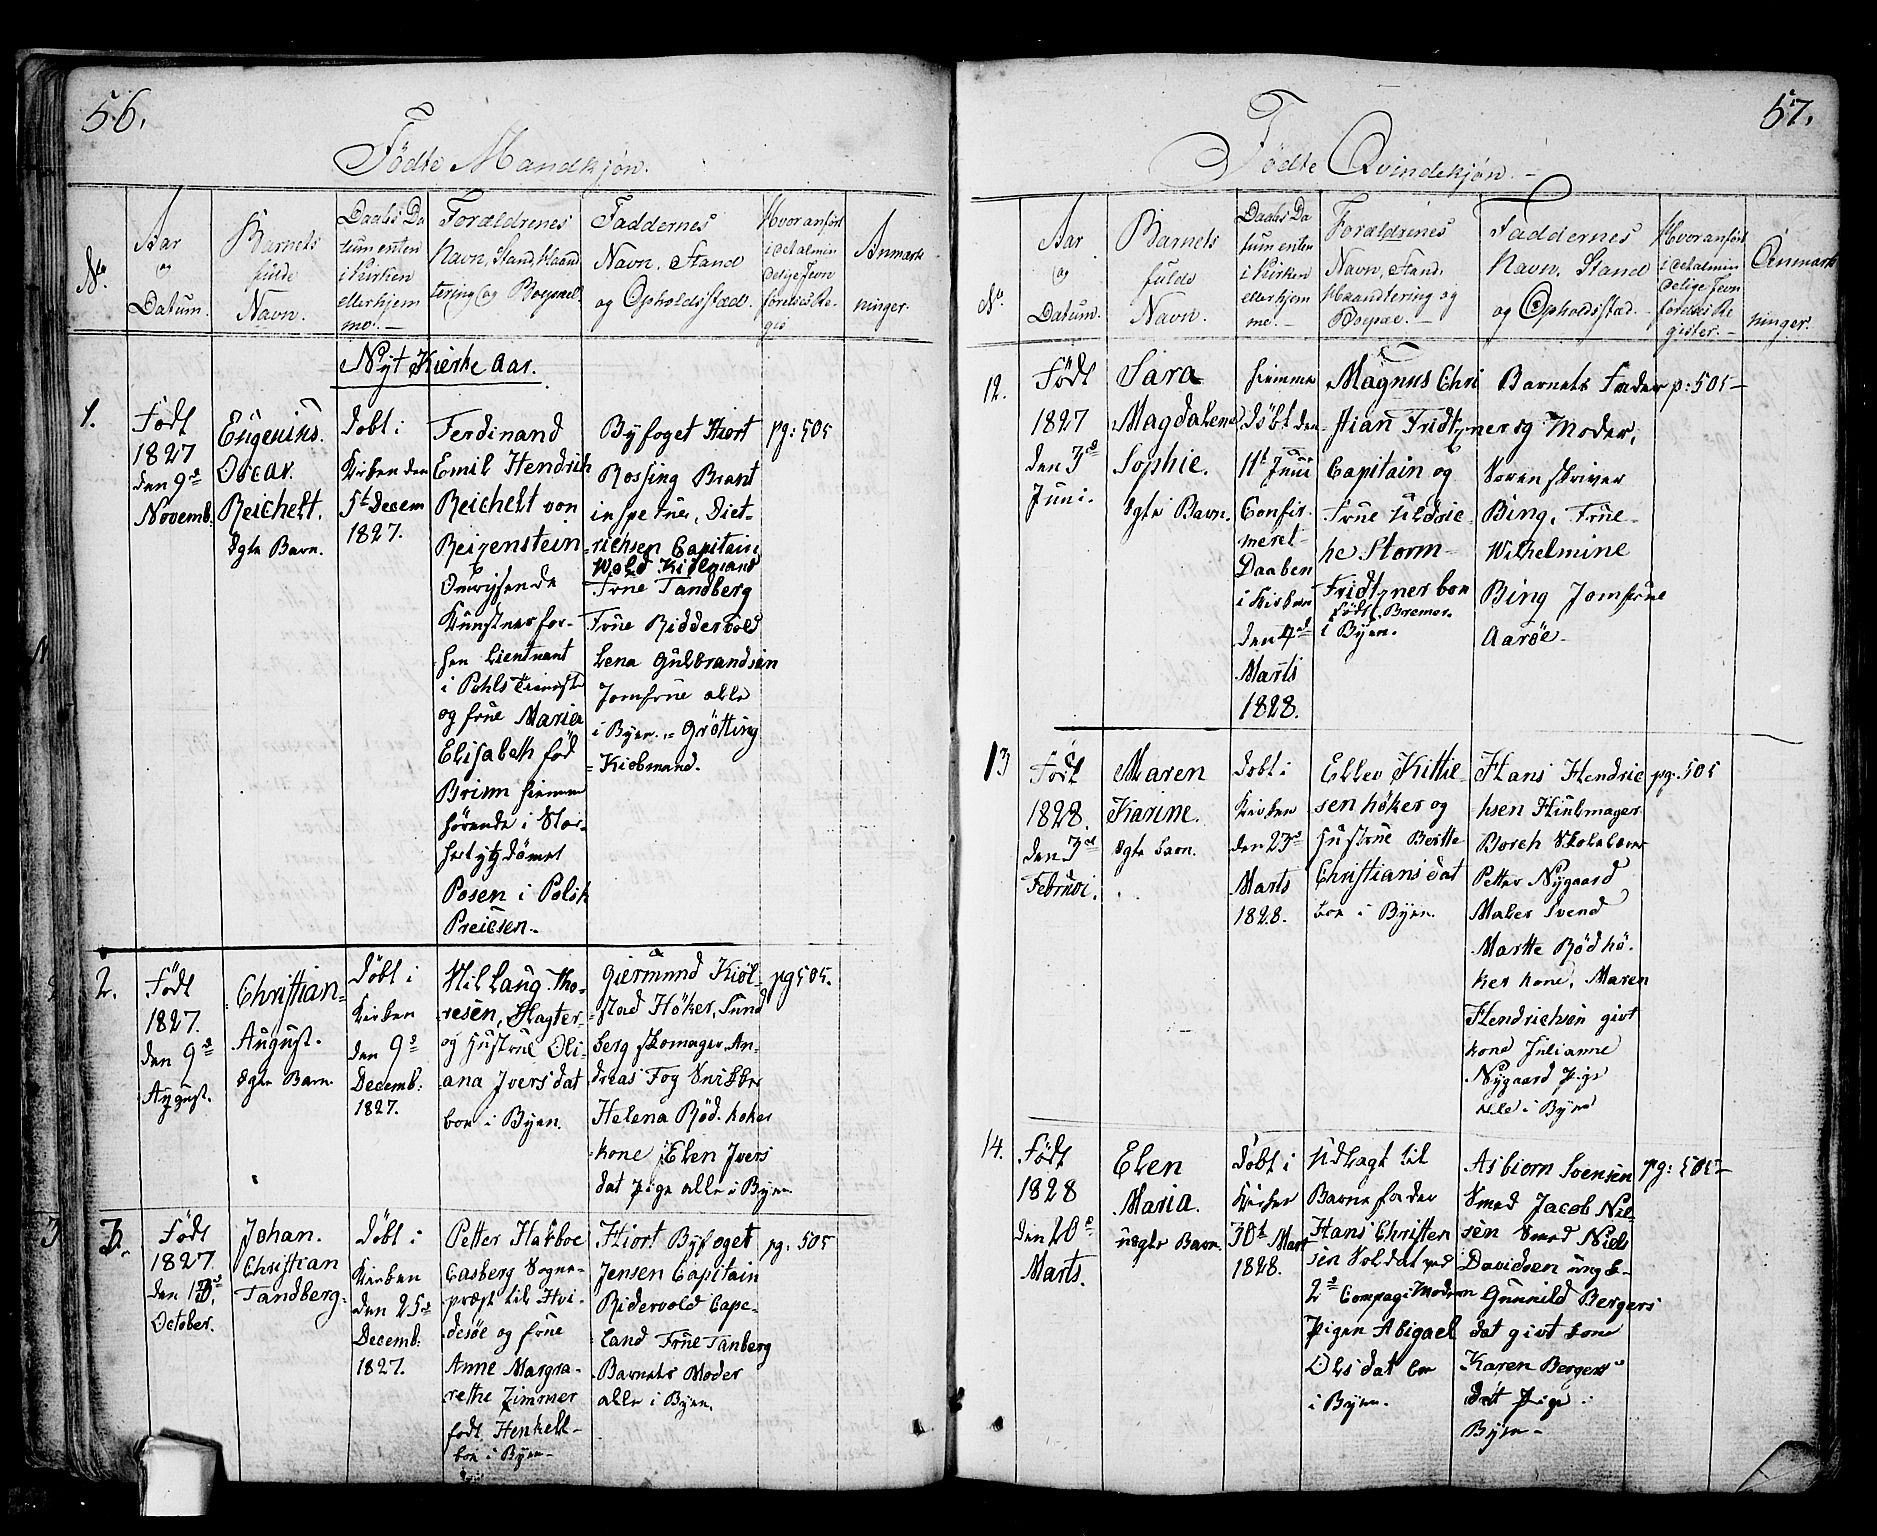 56.
Fødte Mandkjøn.
No.
Aar
og
Datum.
Barnets
fulde
Navn.
Daabs Da
tum enten
i Kirken
eller hjem
me.
Forældrenes
Navn, Stand, Haand
tering og Boepæl.
Faddernes
Navn, Stand
og Opholdsstæd.
Hvor anført
i det almin
delige Jevn
førelses Re-
gis
Anmærk
ninger.
Nyt Kierke Aar.
1.
Født
1827
den 9de
Novemb.
Eugenius.
Oscar.
Reichelt.
Ægte Barn.
Døbt i
Kirken den
5t Decem
1827.
Ferdinand
Emil Hendrik
Reichelt von
Reizenstein
Omrejsende
Kunstner for-
hen Lieutnant
i Pohls Tieneste
og frue Maria
Elisabeth fød
Brimm hiemme
hørende i Stor-
hertugdømet
Posen i Polsk
Preiesen-
Byfoget Hiort
Rossing Brant
inspetuer, Diet-
richsen Capitain
Wold Kiøbmand
Frue Tandberg
Frue Riddervold
Lena Gulbrandsen
Jomfrue alle
i Byen. = Grøtting
=Kiøbmand.
pg: 505
2.
Født
1827.
den 9de
August.
Christian-
August.
Ægte Barn.
Døbt i
Kirken
den 9de
Decemb:
1827.
Nil Laug. Tho-
resen, Slagter-
og Hustrue Oli-
ana Ivers dat
boe i Byen.
Giermund Kiøl-
stad Høker, Sund
berg skomager An-
dreas Fog Snikker
Helena Rød. høker
kone Elen Ivers
dat Pige alle i Byen
pg 505.
3.
Født
1827.
den 13de
October.
Johan.
Christian
Tandberg.
Døbt i
Kirken
den 25de
Decemb:
1827.
Petter Hakboe
Casberg Sogne-
præst til Hvi-
desøe og frue
Anne Margra-
rethe Zimmer
født Henkell-
boe i Byen-
Hiort Byfoget
Jensen Capitain
Ridervold Cape-
land Frue Tanberg
Barnets Moder
alle i Byen.
pg. 505
57.
Fødte Qvindekjøn.
No.
Aar
og
Datum.
Barnets
fulde
Navn.
Daabs Da
tum enten
i Kirken
eller hjem
me.
Forældrenes
Navn, Stand,
Haandtering og
Boepæl.
Faddernes
Navn, Stand
og Opholdsstæd.
Hvor anført
i det almin
delige Jevn
førelses Re
gister.
Anmærk
ninger.
12.
Født
1827
den 3de
Juni.
Sara
Magdalena
Sophie.
Ægte Barn.
hiemme
Døbt den
11t Juni
Confir-
meret
Daaben
i Kirken
den 4de
Marts
1828.
Magnus Chri
stian Fridtzner
Capitain og
Frue Uldric-
he Storm-
Fridtzner boe
Født Bremer.
i Byen.
Barnets Fader
og Moder,
Sorenskriver
Bing, Frue-
Wilhelmine
Bing Jomfrue
Aarøe-
p: 505-
13
Født
1828.
den 3de
Februri.
Maren
Karine.
Ægte barn.
Døbt i
Kirken
den 23de
Marts
1828.
Ellev Kittil-
sen høker og
Hustrue Berthe
Christians dat
boe i Byen.
Hans Hendric
hsen Hiulmager
Borch
Petter Nygaard
Maler Svend
Marthe Rød hø-
ker kone, Maren
Hendrichsen givt
kone Julianne
Nygaard Pige
alle i Byen
pg. 505
14.
Født
1828
den 20de
Marts.
Elen
Maria.
uægte Barn.
Døbt i
Kirken
30t Mart
1828.
Udlagt til
Barnefader
Hans Christen
sen Soldat ved
2de Compagi Modern
Pigen Abigael
Ols dat boe
i Byen.
Asbiørn Svensen
Smed Jacob Nil-
sen Smed Niels
Davidsen ungk-
Gunnild Bergers
dat givt kone
Karen Bergers
dat Pige i
Byen-
pg: 505-